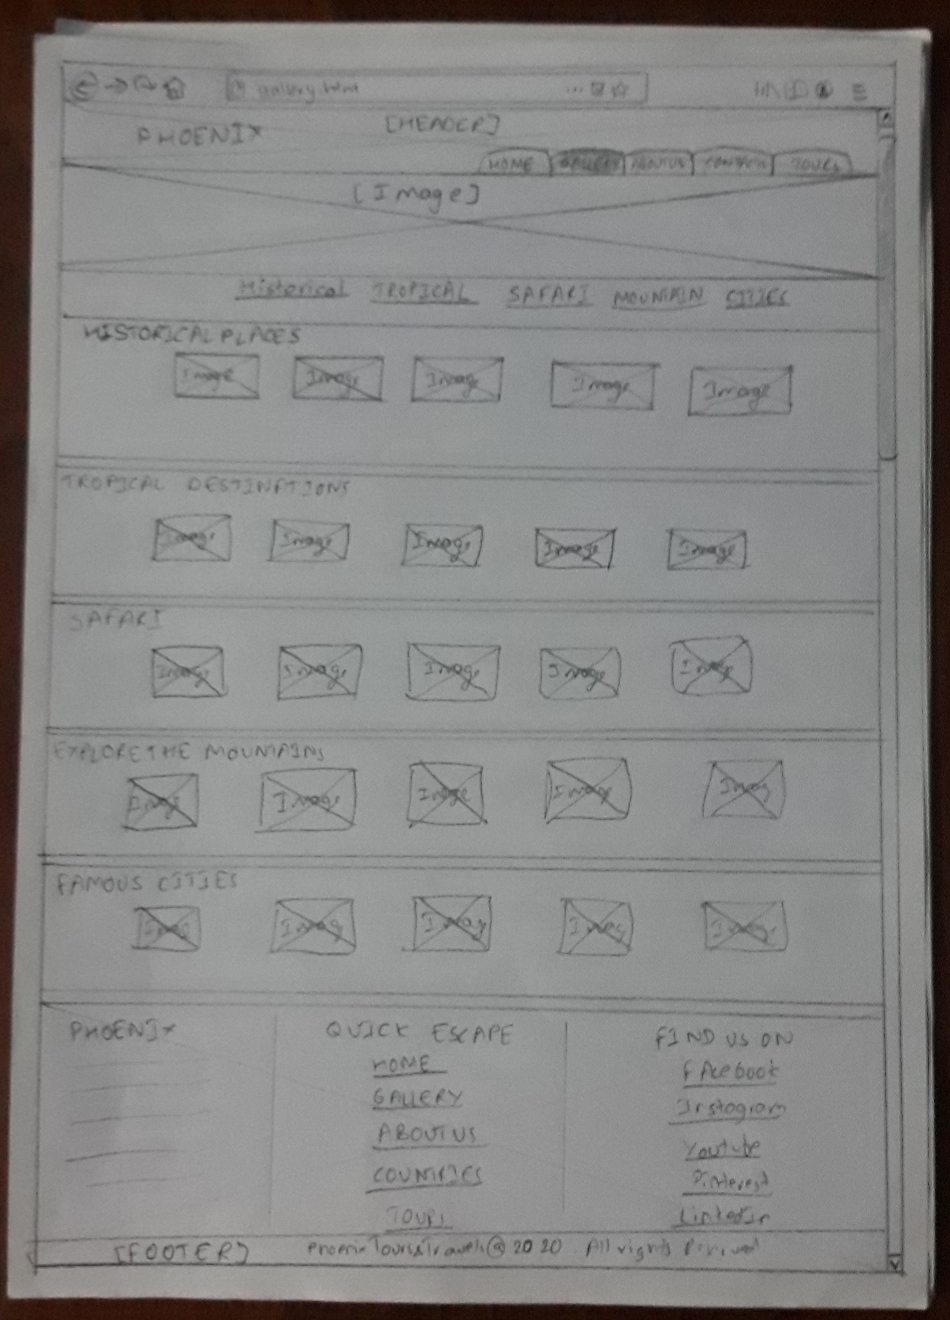 gallery.htm
[HEADER]
PHOENIX
HOME GALLERY ABOUT US COUNTRIES TOURS
[Image]
Historical TROPICAL SAFARI MOUNTAIN CITIES
HISTORICAL PLACES
Image Image Image Image Image
TROPICAL DESTINATIONS
Image Image Image Image Image
SAFARI
Image Image Image Image Image
EXPLORE THE MOUNTAINS
Image Image Image Image Image
FAMOUS CITIES
Image Image Image Image Image
PHOENIX QUICK ESCAPE FIND US ON
HOME Facebook
GALLERY Instagram
ABOUT US Youtube
COUNTRIES Pinterest
TOURS LinkedIn
[FOOTER] Phoenix Tours&Travels@2020 All rights